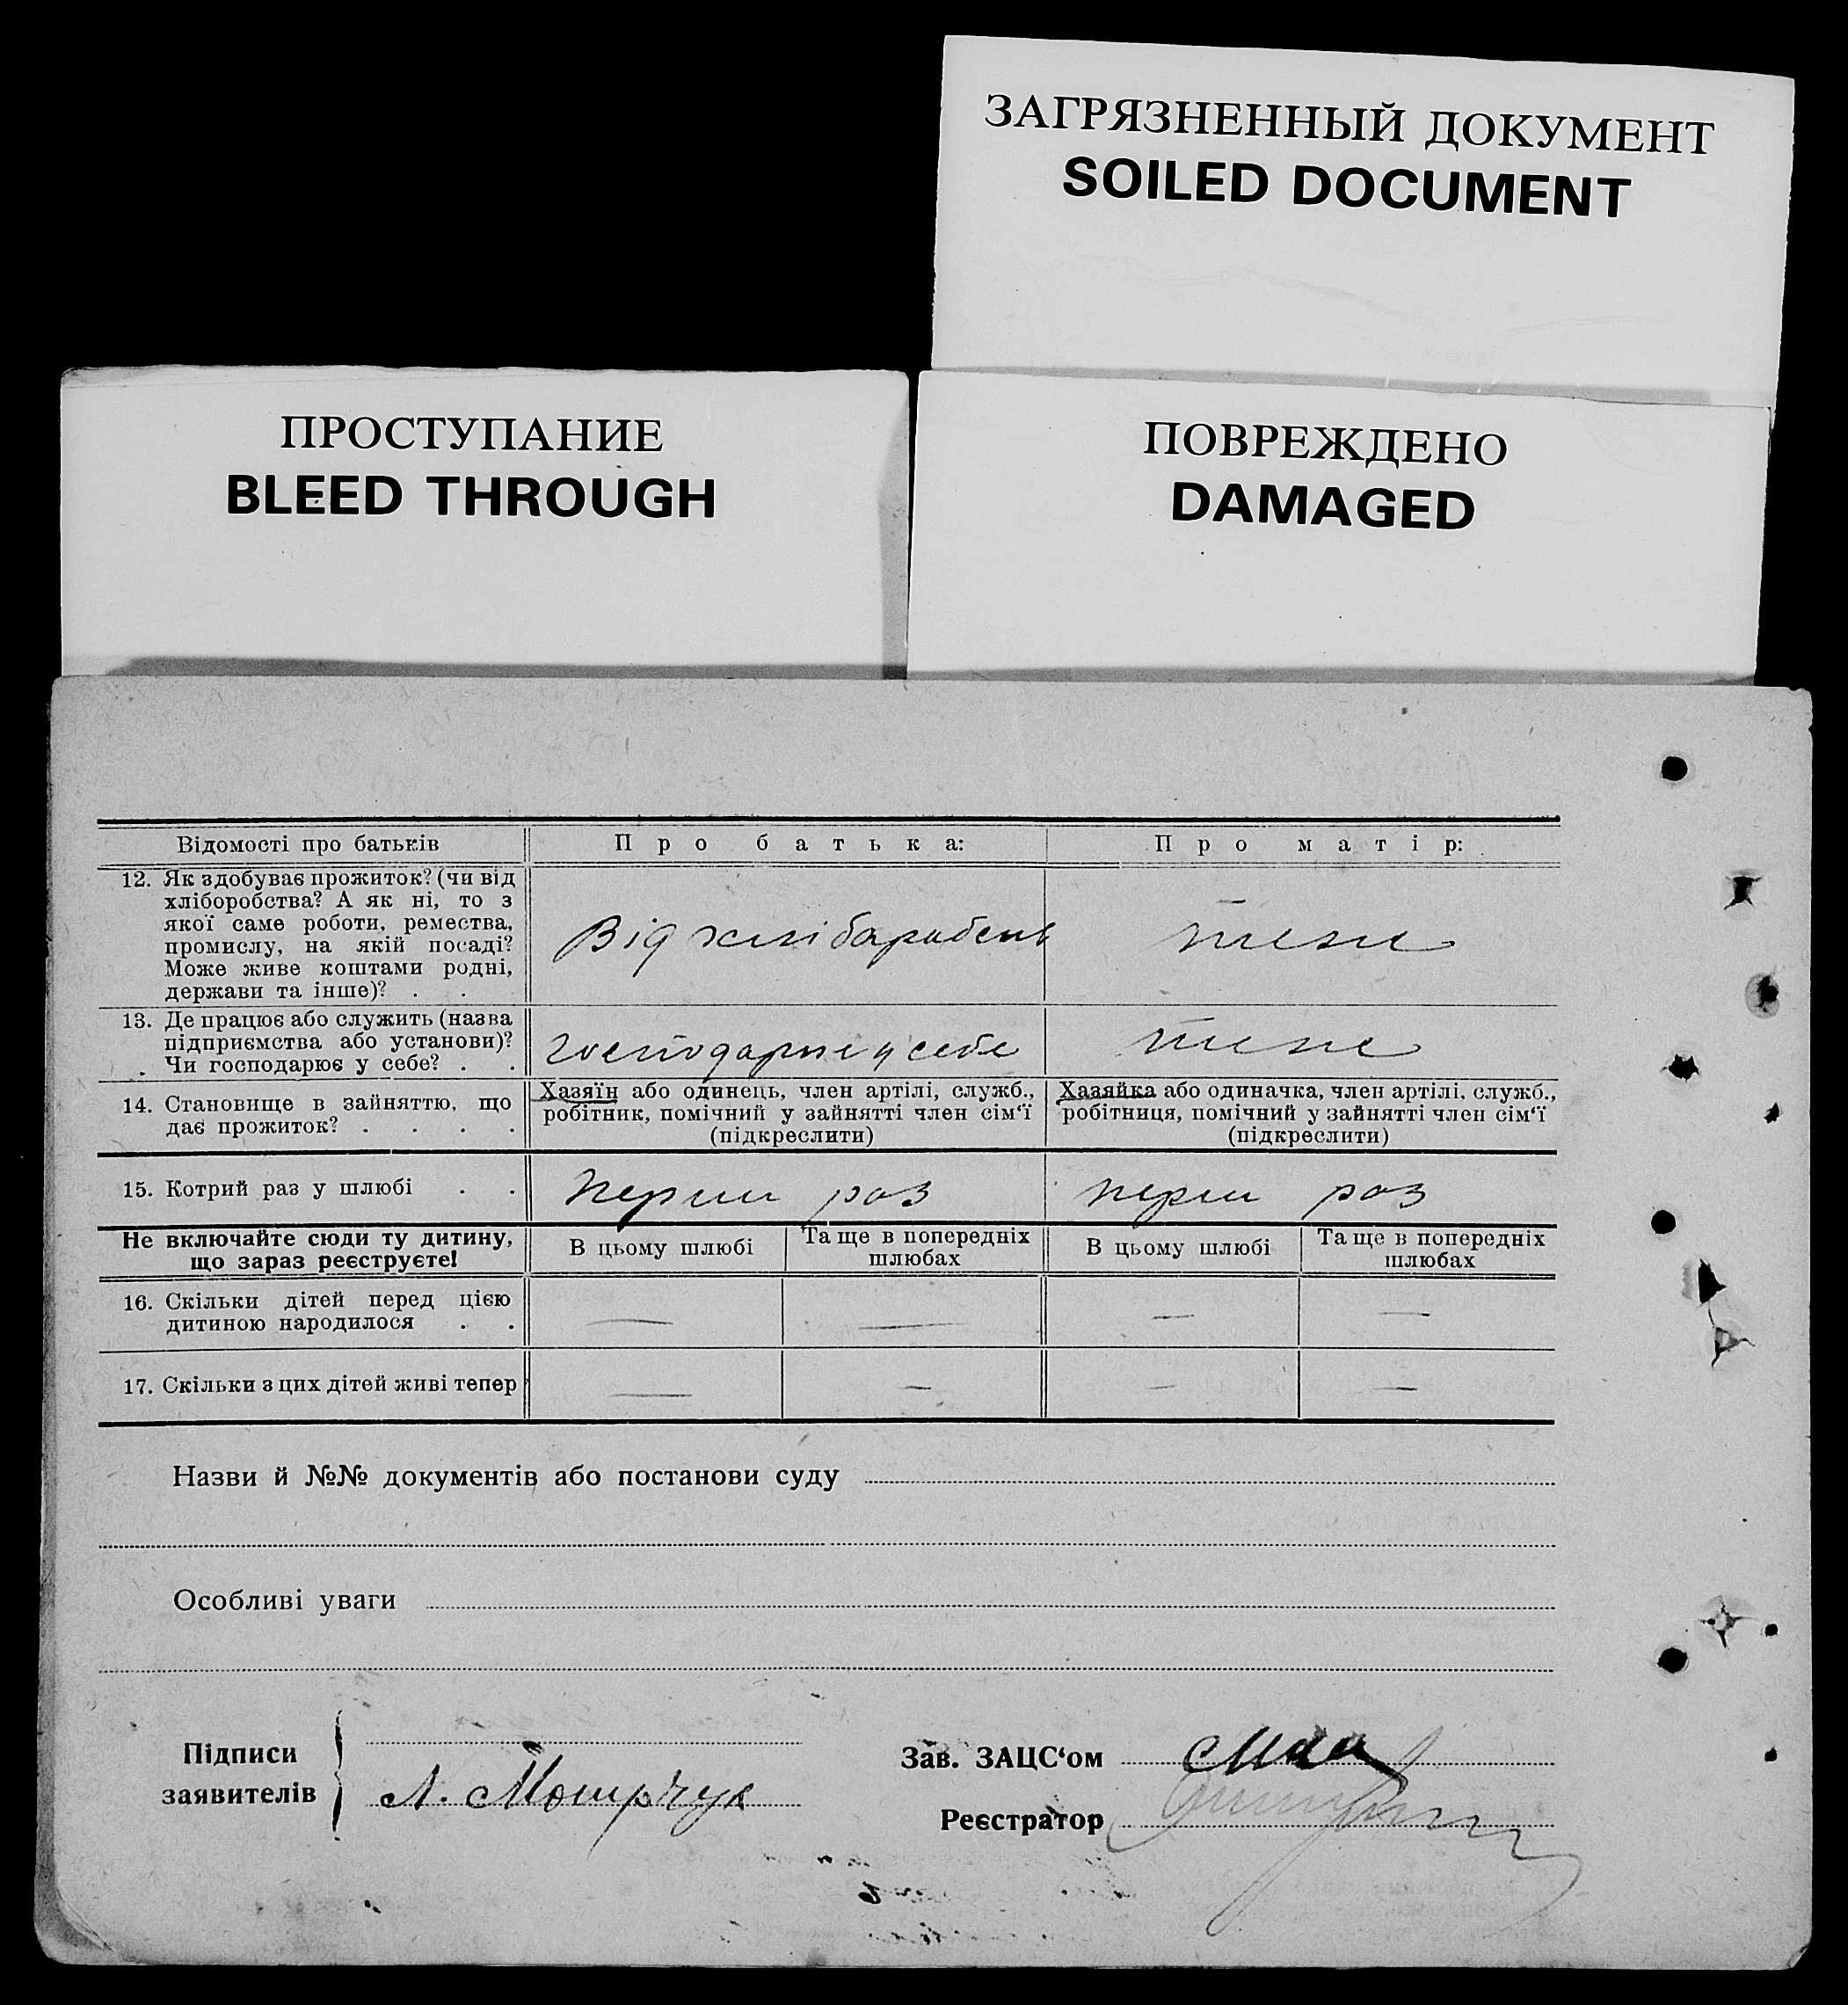 ЗАГРЯЗНЕННЫЙ ДОКУМЕНТ
SOILED DOCUMENT
ПРОСТУПАНИЕ
BLEED THROUGH
ПОВРЕЖДЕНО
DAMAGED
Відомості про батьків
Про батька:
Про матір:
12. Як здобуває прожиток? (чи від
хліборобства? А як ні, то з
якої саме роботи, ремества,
промислу, на якій посаді?
Може живе коштами родні,
держави та інше)? . .
Від
13. Де працює або служить (назва
підприємства або установи)?
Чи господарює у себе? . .
господарює у себе
14. Становище в зайняттю, що
дає прожиток? . . . .
Хазяїн або одинець, член артілі, служб.,
робітник, помічний у зайнятті член сім‘ї
(підкреслити)
Хазяйка або одиначка, член артілі, служб.,
робітниця, помічний у зайнятті член сім‘ї
(підкреслити)
15. Котрий раз у шлюбі . .
перши раз
перши раз
Не включайте сюди ту дитину,
що зараз реєструєте!
В цьому шлюбі
Та ще в попередніх
шлюбах
В цьому шлюбі
Та ще в попередніх
шлюбах
16. Скільки дітей перед цією
дитиною народилося . .
— — — —
17. Скільки з цих дітей живі тепер
— — — —
Назви й №№ документів або постанови суду
Особливі уваги
Підписи
заявителів
Зав. ЗАЦС‘ом
Реєстратор